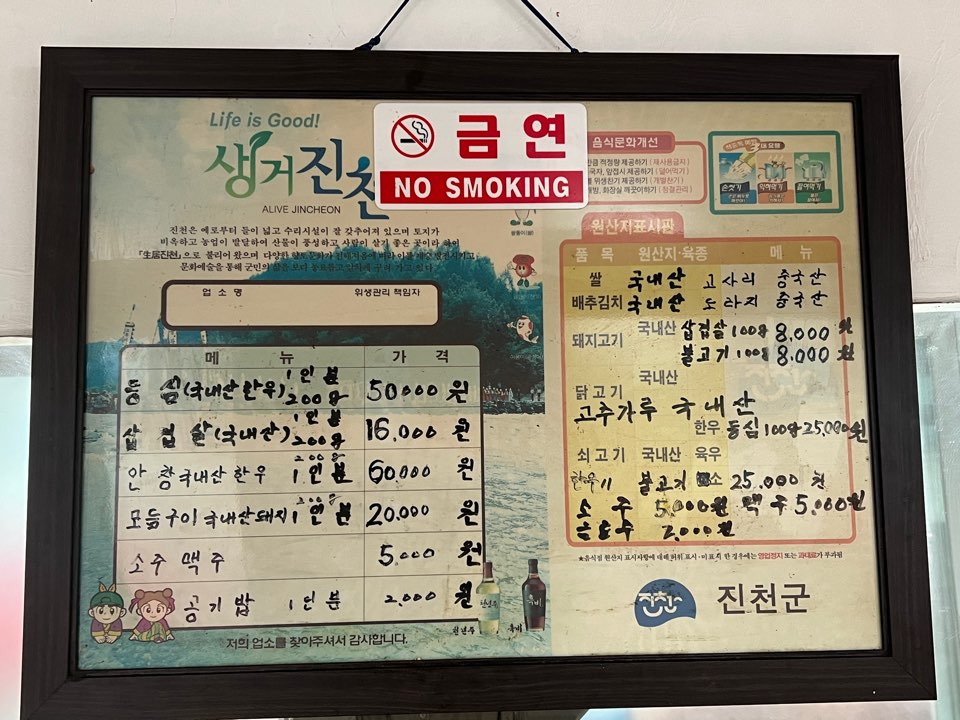 Life is Good!
생거진천
ALIVE JINCHEON
진천은 예로부터 들이 넓고 수리시설이 잘 갖추어져 있으며 토지가
비옥하고 농업이 발달하여 산물이 풍성하고 사람이 살기 좋은 곳이라 하여
「生居진천」으로 불리어 왔으며 다양한
문화예술을 통해 군민의 삶을 보다 풍요롭고
업 소 명 위생관리 책임자
메 뉴 가 격
등 심(국내산한우) 1인분 200g 50000 원
삼 겹 살(국내산) 1인분 200g 16,000 원
안 창 국내산 한우 200g 1인분 60000 원
모듬구이 국내산돼지 200g 1인분 20,000 원
소주 맥주 5,000 원
공기밥 1인분 2,000 원
저희 업소를 찾아주셔서 감사합니다.
금연
NO SMOKING
음식문화개선
적정량 제공하기 ( 재사용금지 )
국자, 앞접시 제공하기 ( 덜어먹기 )
위생찬기 제공하기 ( 개별찬기 )
화장실 깨끗이하기 ( 청결관리 )
손씻기
익혀먹기
끓여먹기
원산지표시판
품 목 원산지·육종 메 뉴
쌀 국내산 고사리 중국산
배추김치 국내산 도라지 중국산
돼지고기 국내산 삼겹살 100g 8,000 원
불고기 100g 8,000 원
닭고기 국내산
고추가루 국내산
한우 등심 100g 25,000원
쇠고기 국내산 육우
한우 불고기 소 25.000 원
소 주 5,000원 맥주 5,000원
음료수 2,000원
★음식점 원산지 표시사항에 대해 허위 표시 · 미표시 한 경우에는 영업정지 또는 과태료가 부과됨
진천 진천군